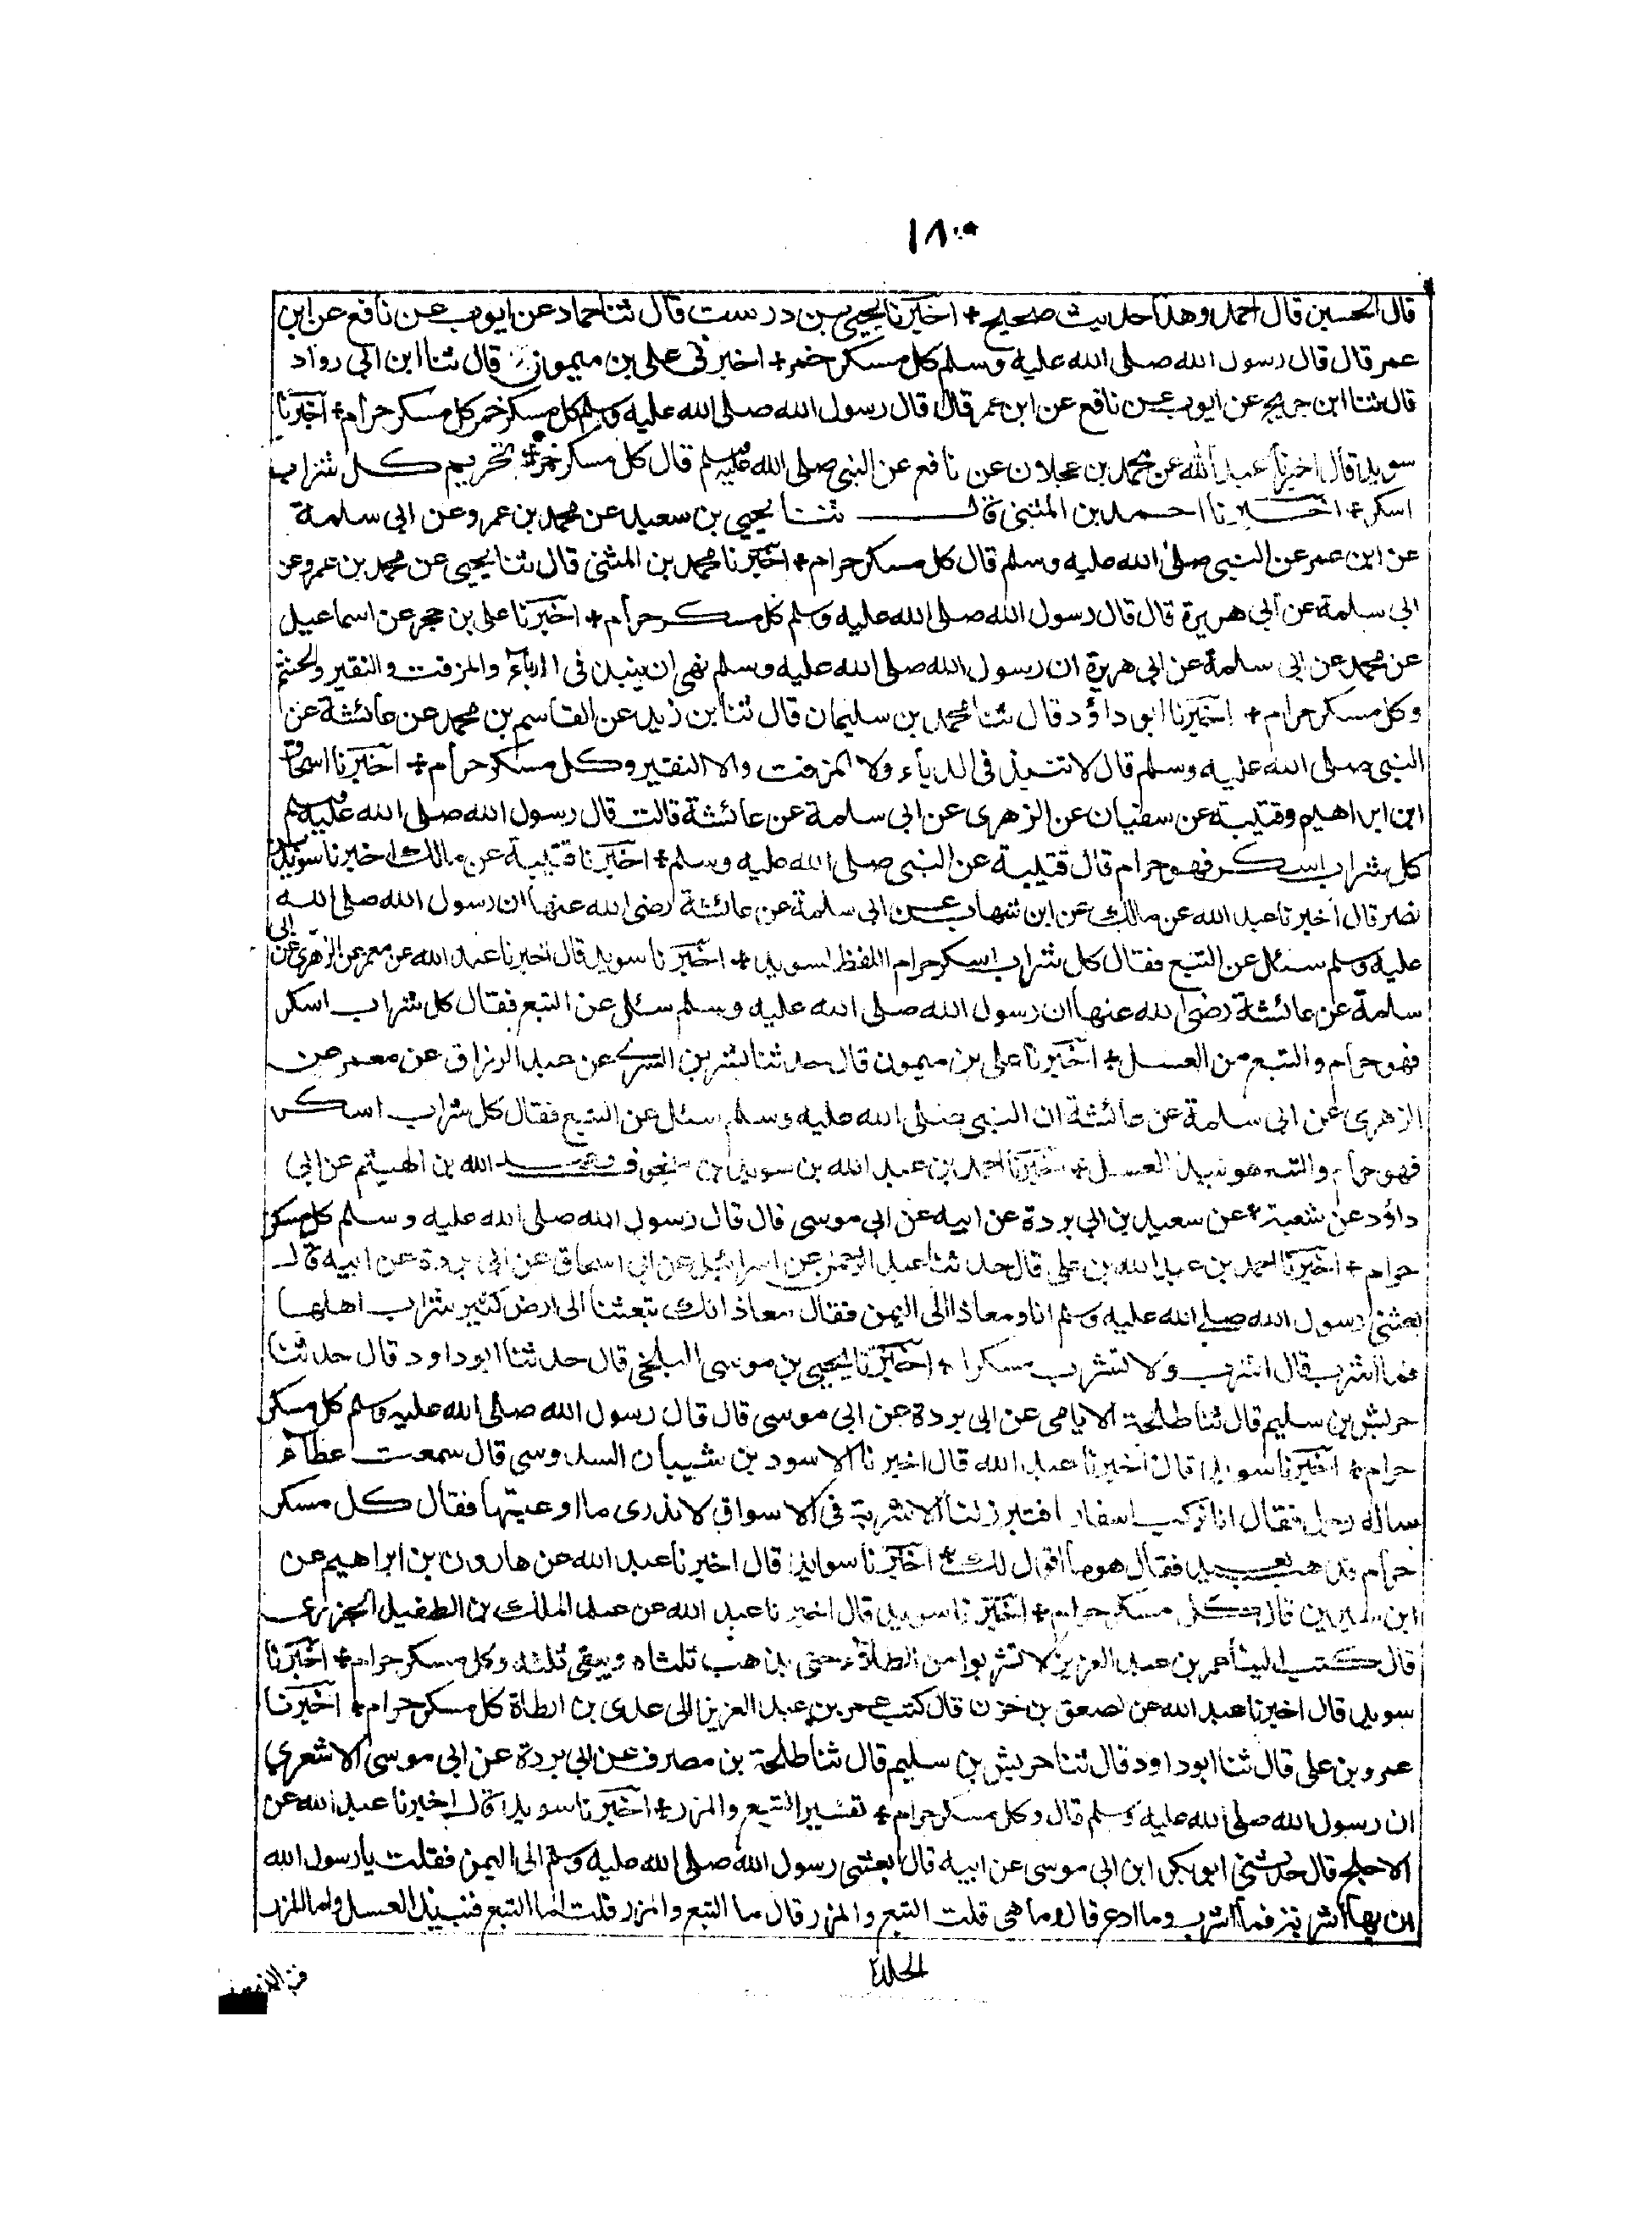 ١٨٠
قال الحسين قال احمد وهذا حديث صحيح + اخبرنا يحيى بن درست قال ثنا حماد عن ايوب عن نافع عن ابن
عمر قال قال رسول الله صلى الله عليه وسلم كل مسكر خمر + اخبرني على بن ميمون قال ثنا ابن ابى رواد
قال ثنا ابن جريج عن ايوب عن نافع عن ابن عمر قال قال رسول الله صلى الله عليه وسلم كل مسكر خمر كل مسكر حرام + اخبرنا
سويد قال اخبرنا عبد الله عن محمد بن عجلان عن نافع عن النبى صلى الله عليه وسلم قال كل مسكر خمر + تحريم كل شراب
اسكر + اخبرنا احمد بن المثنى قال ثنا يحيى بن سعيد عن محمد بن عمرو عن ابى سلمة
عن ابن عمر عن النبى صلى الله عليه وسلم قال كل مسكر حرام + اخبرنا محمد بن المثنى قال ثنا يحيى عن محمد بن عمرو عن
ابى سلمة عن ابى هريرة قال قال رسول الله صلى الله عليه وسلم كل مسكر حرام + اخبرنا على بن حجر عن اسماعيل
عن محمد عن ابى سلمة عن ابى هريرة ان رسول الله صلى الله عليه وسلم نهى ان ينبذ فى الدباء والمزفت والنقير والحنتم
وكل مسكر حرام + اخبرنا ابو داؤد قال ثنا محمد بن سليمان قال ثنا بن زيد عن القاسم بن محمد عن عائشة عن
النبى صلى الله عليه وسلم قال لا تنبذ فى الدباء ولا المزفت ولا النقير وكل مسكر حرام + اخبرنا اسحاق
ابن ابراهيم وقتيبة عن سفيان عن الزهرى عن ابى سلمة عن عائشة قالت قال رسول الله صلى الله عليه وسلم
كل شراب اسكر فهو حرام قال قتيبة عن النبى صلى الله عليه وسلم + اخبرنا قتيبة عن مالك اخبرنا سويد بن
نصر قال اخبرنا عبد الله عن مالك عن ابن شهاب عن ابى سلمة عن عائشة رضى الله عنها ان رسول الله صلى الله
عليه وسلم سئل عن التبع فقال كل شراب اسكر حرام اللفظ لسويد + اخبرنا سويد قال اخبرنا عبد الله عن معمر عن الزهرى عن ابى
سلمة عن عائشة رضى الله عنها ان رسول الله صلى الله عليه وسلم سئل عن التبع فقال كل شراب اسكر
فهو حرام والتبع من العسل + اخبرنا على بن ميمون قال حدثنا بشر بن السرى عن عبد الرزاق عن معمر عن
الزهرى عن ابى سلمة عن عائشة ان النبى صلى الله عليه وسلم سئل عن التبع فقال كل شراب اسكر
فهو حرام والتبع هو نبيذ العسل + اخبرنا احمد بن عبد الله بن سويد بن منجوف وعبد الله بن الهيثم عن ابى
داؤد عن شعبة عن سعيد بن ابى بردة عن ابيه عن ابى موسى قال قال رسول الله صلى الله عليه وسلم كل مسكر
حرام + اخبرنا احمد بن عبد الله بن على قال حدثنا عبد الرحمن عن اسرائيل عن ابى اسحاق عن ابى بردة عن ابيه قال
بعثنى رسول الله صلى الله عليه وسلم انا ومعاذا الى اليمن فقال معاذ انك تبعثنا الى ارض كثير شراب اهلها
فما اشرب قال اشرب ولا تشرب مسكرا + اخبرنا يحيى بن موسى البلخى قال حدثنا ابو داود قال حدثنا
حريش بن سليم قال ثنا طلحة الايامى عن ابى بردة عن ابى موسى قال قال رسول الله صلى الله عليه وسلم كل مسكر
حرام + اخبرنا سويد قال اخبرنا عبد الله قال اخبرنا الاسود بن شيبان السدوسى قال سمعت عطاء
ساله رجل فقال انا نركب اسفار افتبرز لنا الاشربة فى الاسواق لا ندرى ما اوعيتها فقال كل مسكر
حرام فذهب يعيد فقال هو ما اقول لك + اخبرنا سويد قال اخبرنا عبد الله عن هارون بن ابراهيم عن
ابن سيرين قال كل مسكر حرام + اخبرنا سويد قال اخبرنا عبد الله عن عبد الملك بن الطفيل الجزرى
قال كتب الينا عمر بن عبد العزيز لا تشربوا من الطلاء حتى يذهب ثلثاه ويبقى ثلثه وكل مسكر حرام + اخبرنا
سويد قال اخبرنا عبد الله عن لصعق بن حزن قال كتب عمر بن عبد العزيز الى عدى بن ارطاة كل مسكر حرام + اخبرنا
عمرو بن على قال ثنا ابو داود قال ثنا حريش بن سليم قال ثنا طلحة بن مصرف عن ابى بردة عن ابى موسى الاشعرى
ان رسول الله صلى الله عليه وسلم قال وكل مسكر حرام + تفسير التبع والمزر + اخبرنا سويد قال اخبرنا عبد الله عن
الاجلح قال حدثنى ابو بكر ابن ابى موسى عن ابيه قال بعثنى رسول الله صلى الله عليه وسلم الى اليمن فقلت يا رسول الله
ان بها اشربة فما اشرب وما ادع قال وما هى قلت التبع والمزر قال ما التبع والمزر قلت اما التبع فنبيذ العسل واما المزر